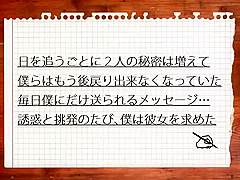 日を追うごとに2人の秘密は増えて
僕らはもう後戻り出来なくなっていた
毎日僕にだけ送られるメッセージ…
誘惑と挑発のたび、僕は彼女を求めた